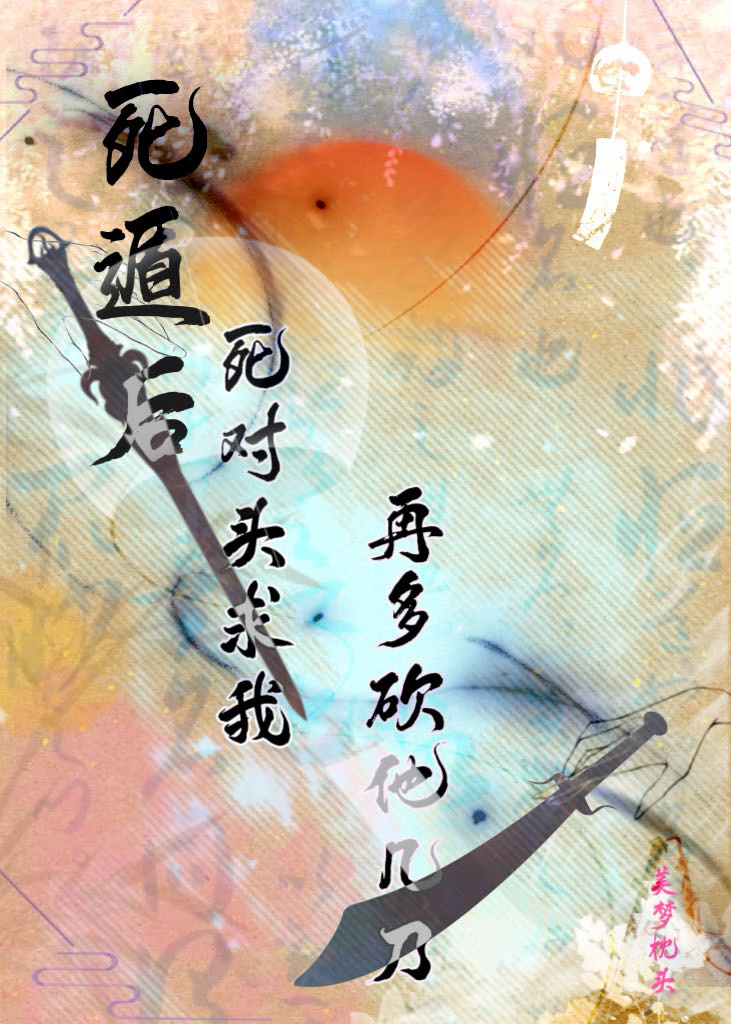 死遁后
死对头求我
再多砍他几刀
美梦枕头